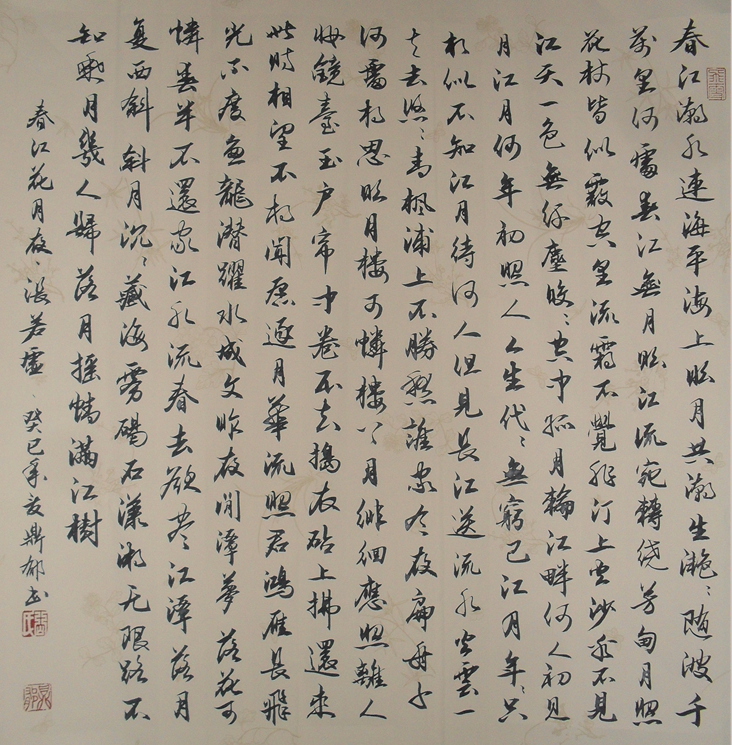 春江潮水連海平海上明月共潮生灧〻随波千
万里何處春江無月明江流宛轉绕芳甸月照
花林皆似霰空里流霜不覺飛汀上白沙看不見
江天一色無纤塵皎〻空中孤月輪江畔何人初見
月江月何年初照人人生代〻無窮已江月年〻只
相似不知江月待何人但見長江送流水白雲一
片去悠〻青楓浦上不勝愁誰家今夜扁舟子
何處相思明月楼可憐楼上月徘徊應照離人
妝鏡臺玉户帘中卷不去擣衣砧上拂還来
此時相望不相聞愿逐月華流照君鴻雁長飛
光不度魚龍潜躍水成文昨夜闲潭夢落花可
憐春半不還家江水流春去欲尽江潭落月
复西斜斜月沉〻藏海霧碣石潇湘无限路不
知乘月幾人歸落月摇情滿江樹
春江花月夜、張若虚、癸巳鼎郁书